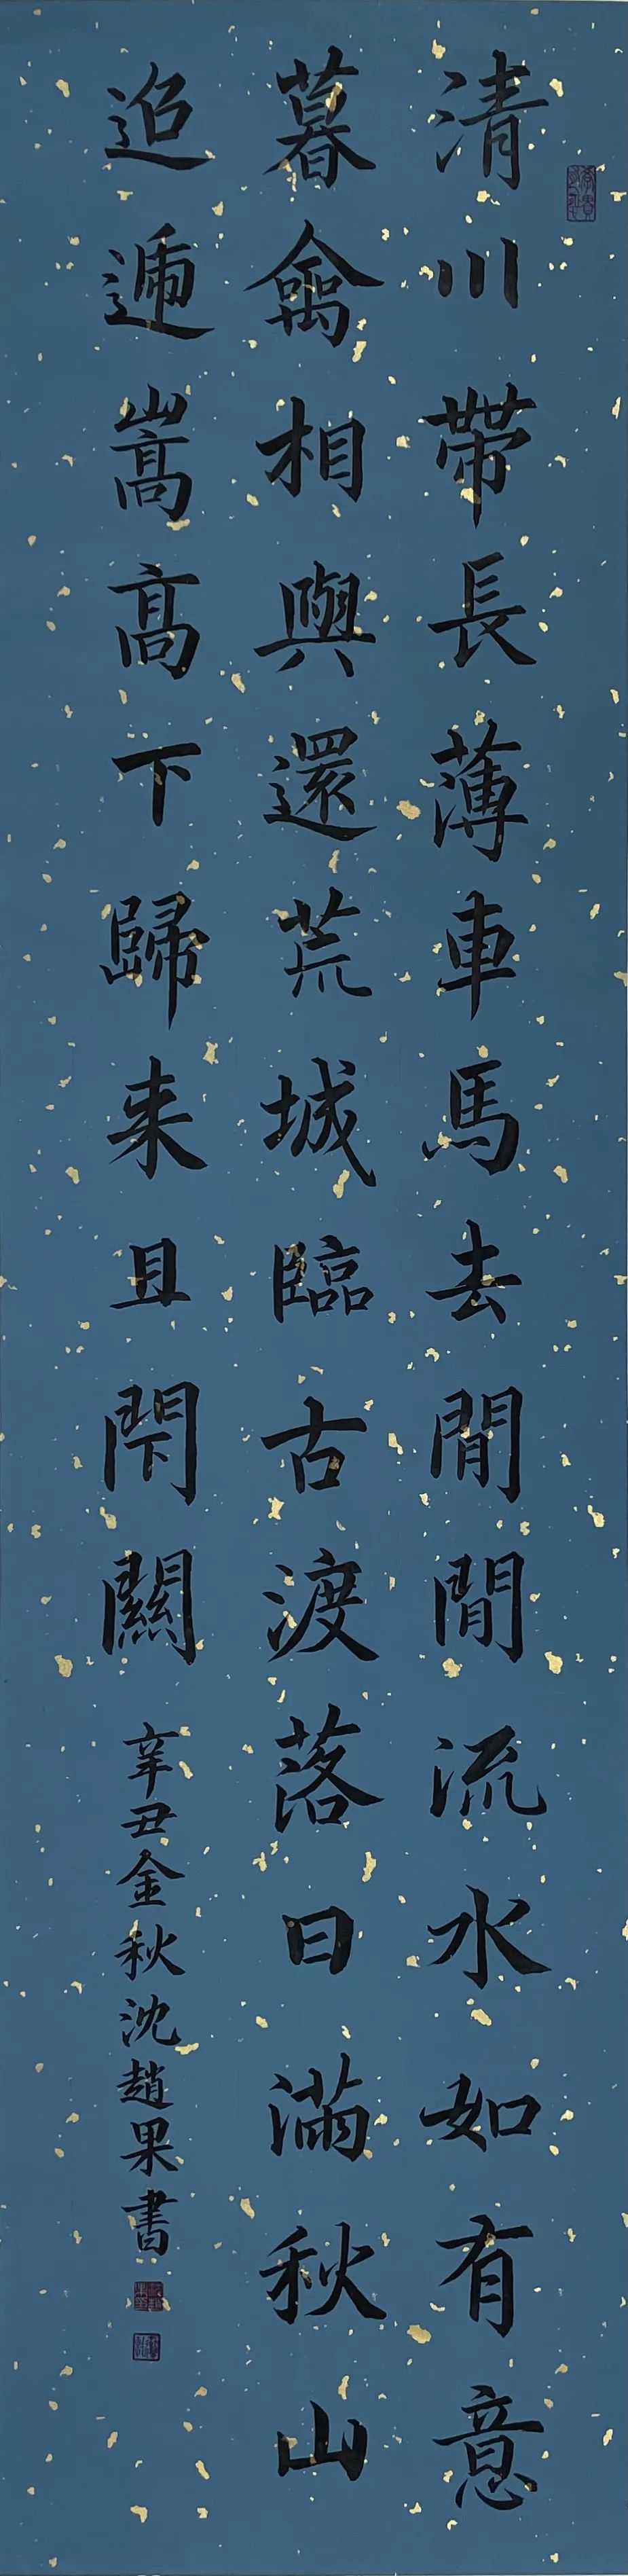 清川帶長薄車馬去閒閒流水如有意
暮禽相與還荒城臨古渡落日滿秋山
迢遞嵩高下歸来且閇關
辛丑金秋沈趙果書